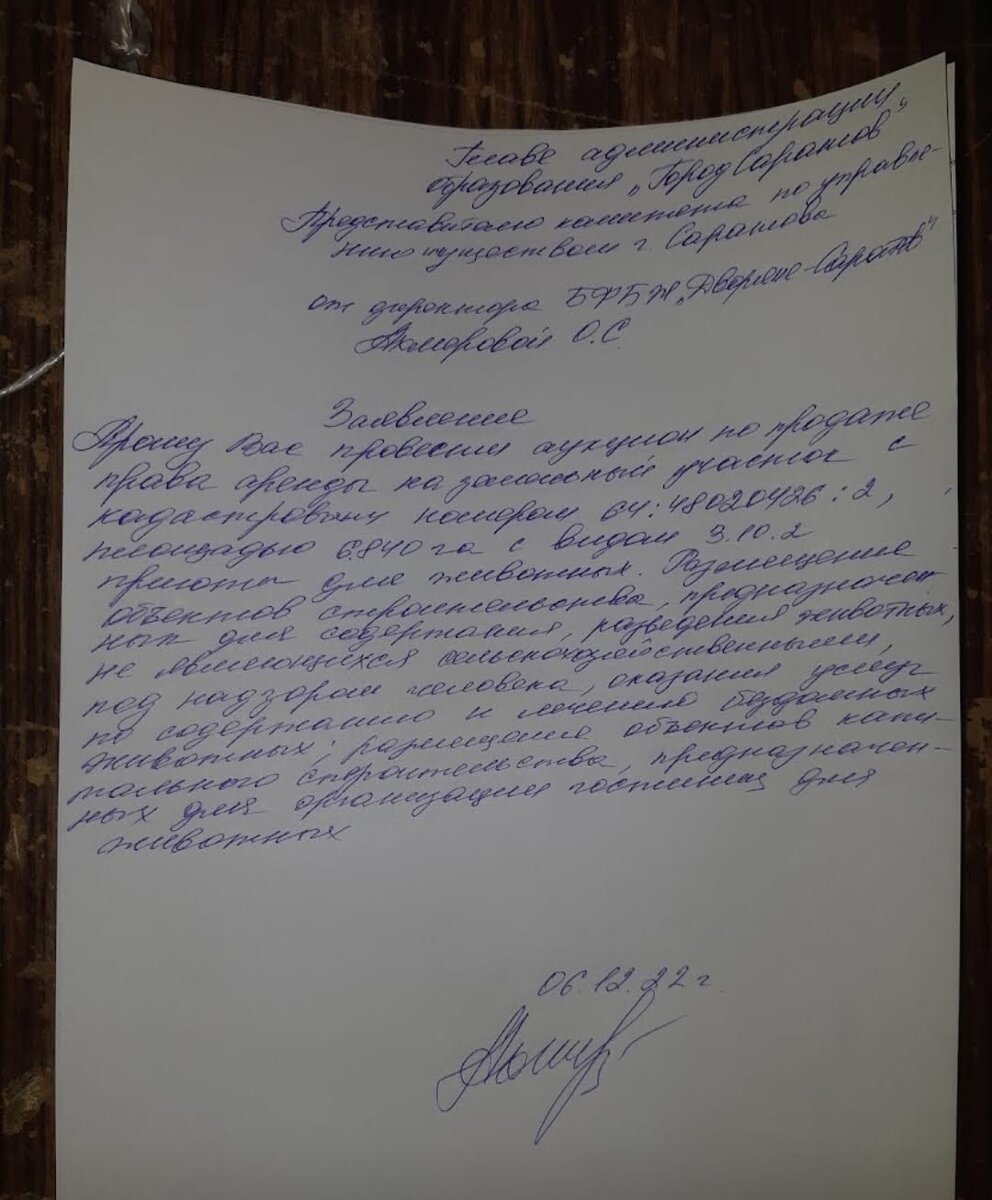 Главе администрации
образования „Город Саратов"
Представителю комитета по управле-
нию имуществом г. Саратова
от директора БФБЖ „Дворяне-Саратов"
О.С
Заявление
Прошу Вас провести аукцион по продаже
права аренды на земельный участок с
кадастровым номером 64:48020426:2,
площадью 6840 га с видом 3.10.2
приюты для животных. Размещение
объектов строительства, предназначен
ных для содержания, разведения животных,
не являющихся сельскохозяйственными,
под надзором человека, оказания услуг
по содержанию и лечению бездомных
животных; размещение объектов капи-
тального строительства, предназначен-
ных для организации гостиниц для
животных
06.12.22 г.